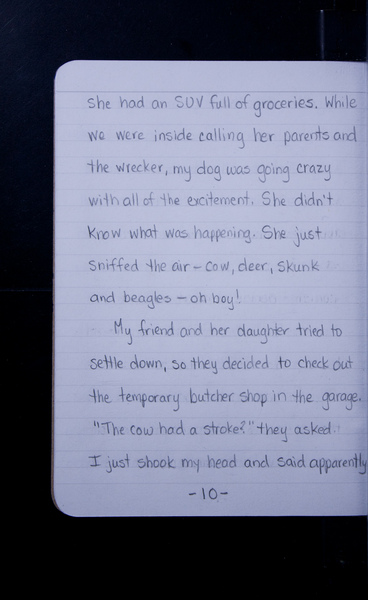 She had an SUV full of groceries. While
we were inside calling her parents and
the wrecker, my dog was going crazy
with all of the excitement. She didn't
know what was happening. She just
sniffed the air - cow, deer, skunk
and beagles - oh boy!
My friend and her daughter tried to
settle down, so they decided to check out
the temporary butcher shop in the garage.
"The cow had a stroke?" they asked.
I just shook my head and said apparently
-10-